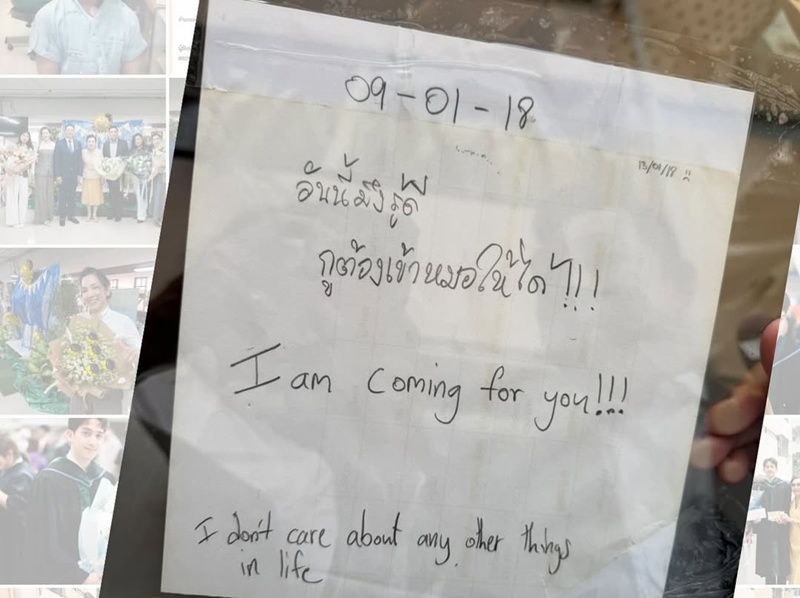 09-01-18
13/01/18
อันนี้มึงรู้ดี
กูต้องเข้าหมอให้ได้!!!
I am coming for you!!!
I don't care about any other things
in life